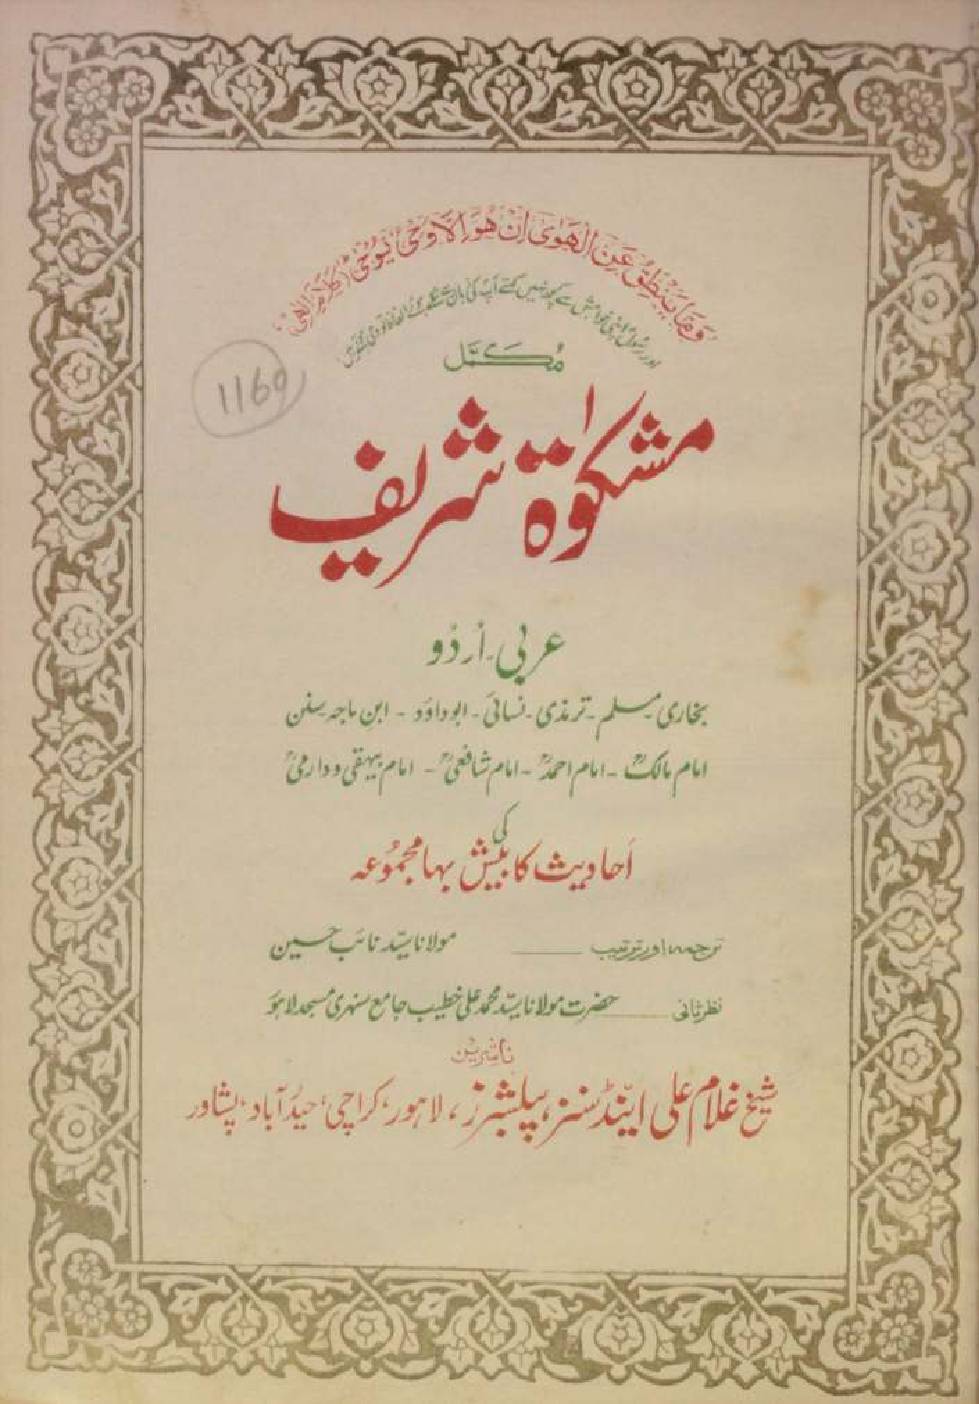 وَمَا يَنْطِقُ عَنِ الْهَوٰى اِنْ هُوَ اِلَّا وَحْیٌ یُّوْحٰی (کلامِ الٰہی)
اور رسول اپنی خواہش سے کچھ نہیں کہتے آپ کی
مُکمَّل
1160
مشکوٰۃ شریف
عربی - اُردُو
بخاری - مسلم - ترمذی - نسائی - ابوداؤد - ابنِ ماجہ سنن
امام مالکؒ - امام احمدؒ - امام شافعیؒ - امام بیہقی و دارمیؒ
کی
اَحادیث کا بیش بہا مجمُوعہ
ترجمہ اور ترتیب ــــــ مولانا سیّد نائب حسین
نظرِ ثانی ــــــ حضرت مولانا سیّد محمد علی خطیب جامع سنہری مسجد لاہور
ناشرین
شیخ غلام علی اینڈ سنز، پبلشرز، لاہور، کراچی، حیدُرآباد، پشاور